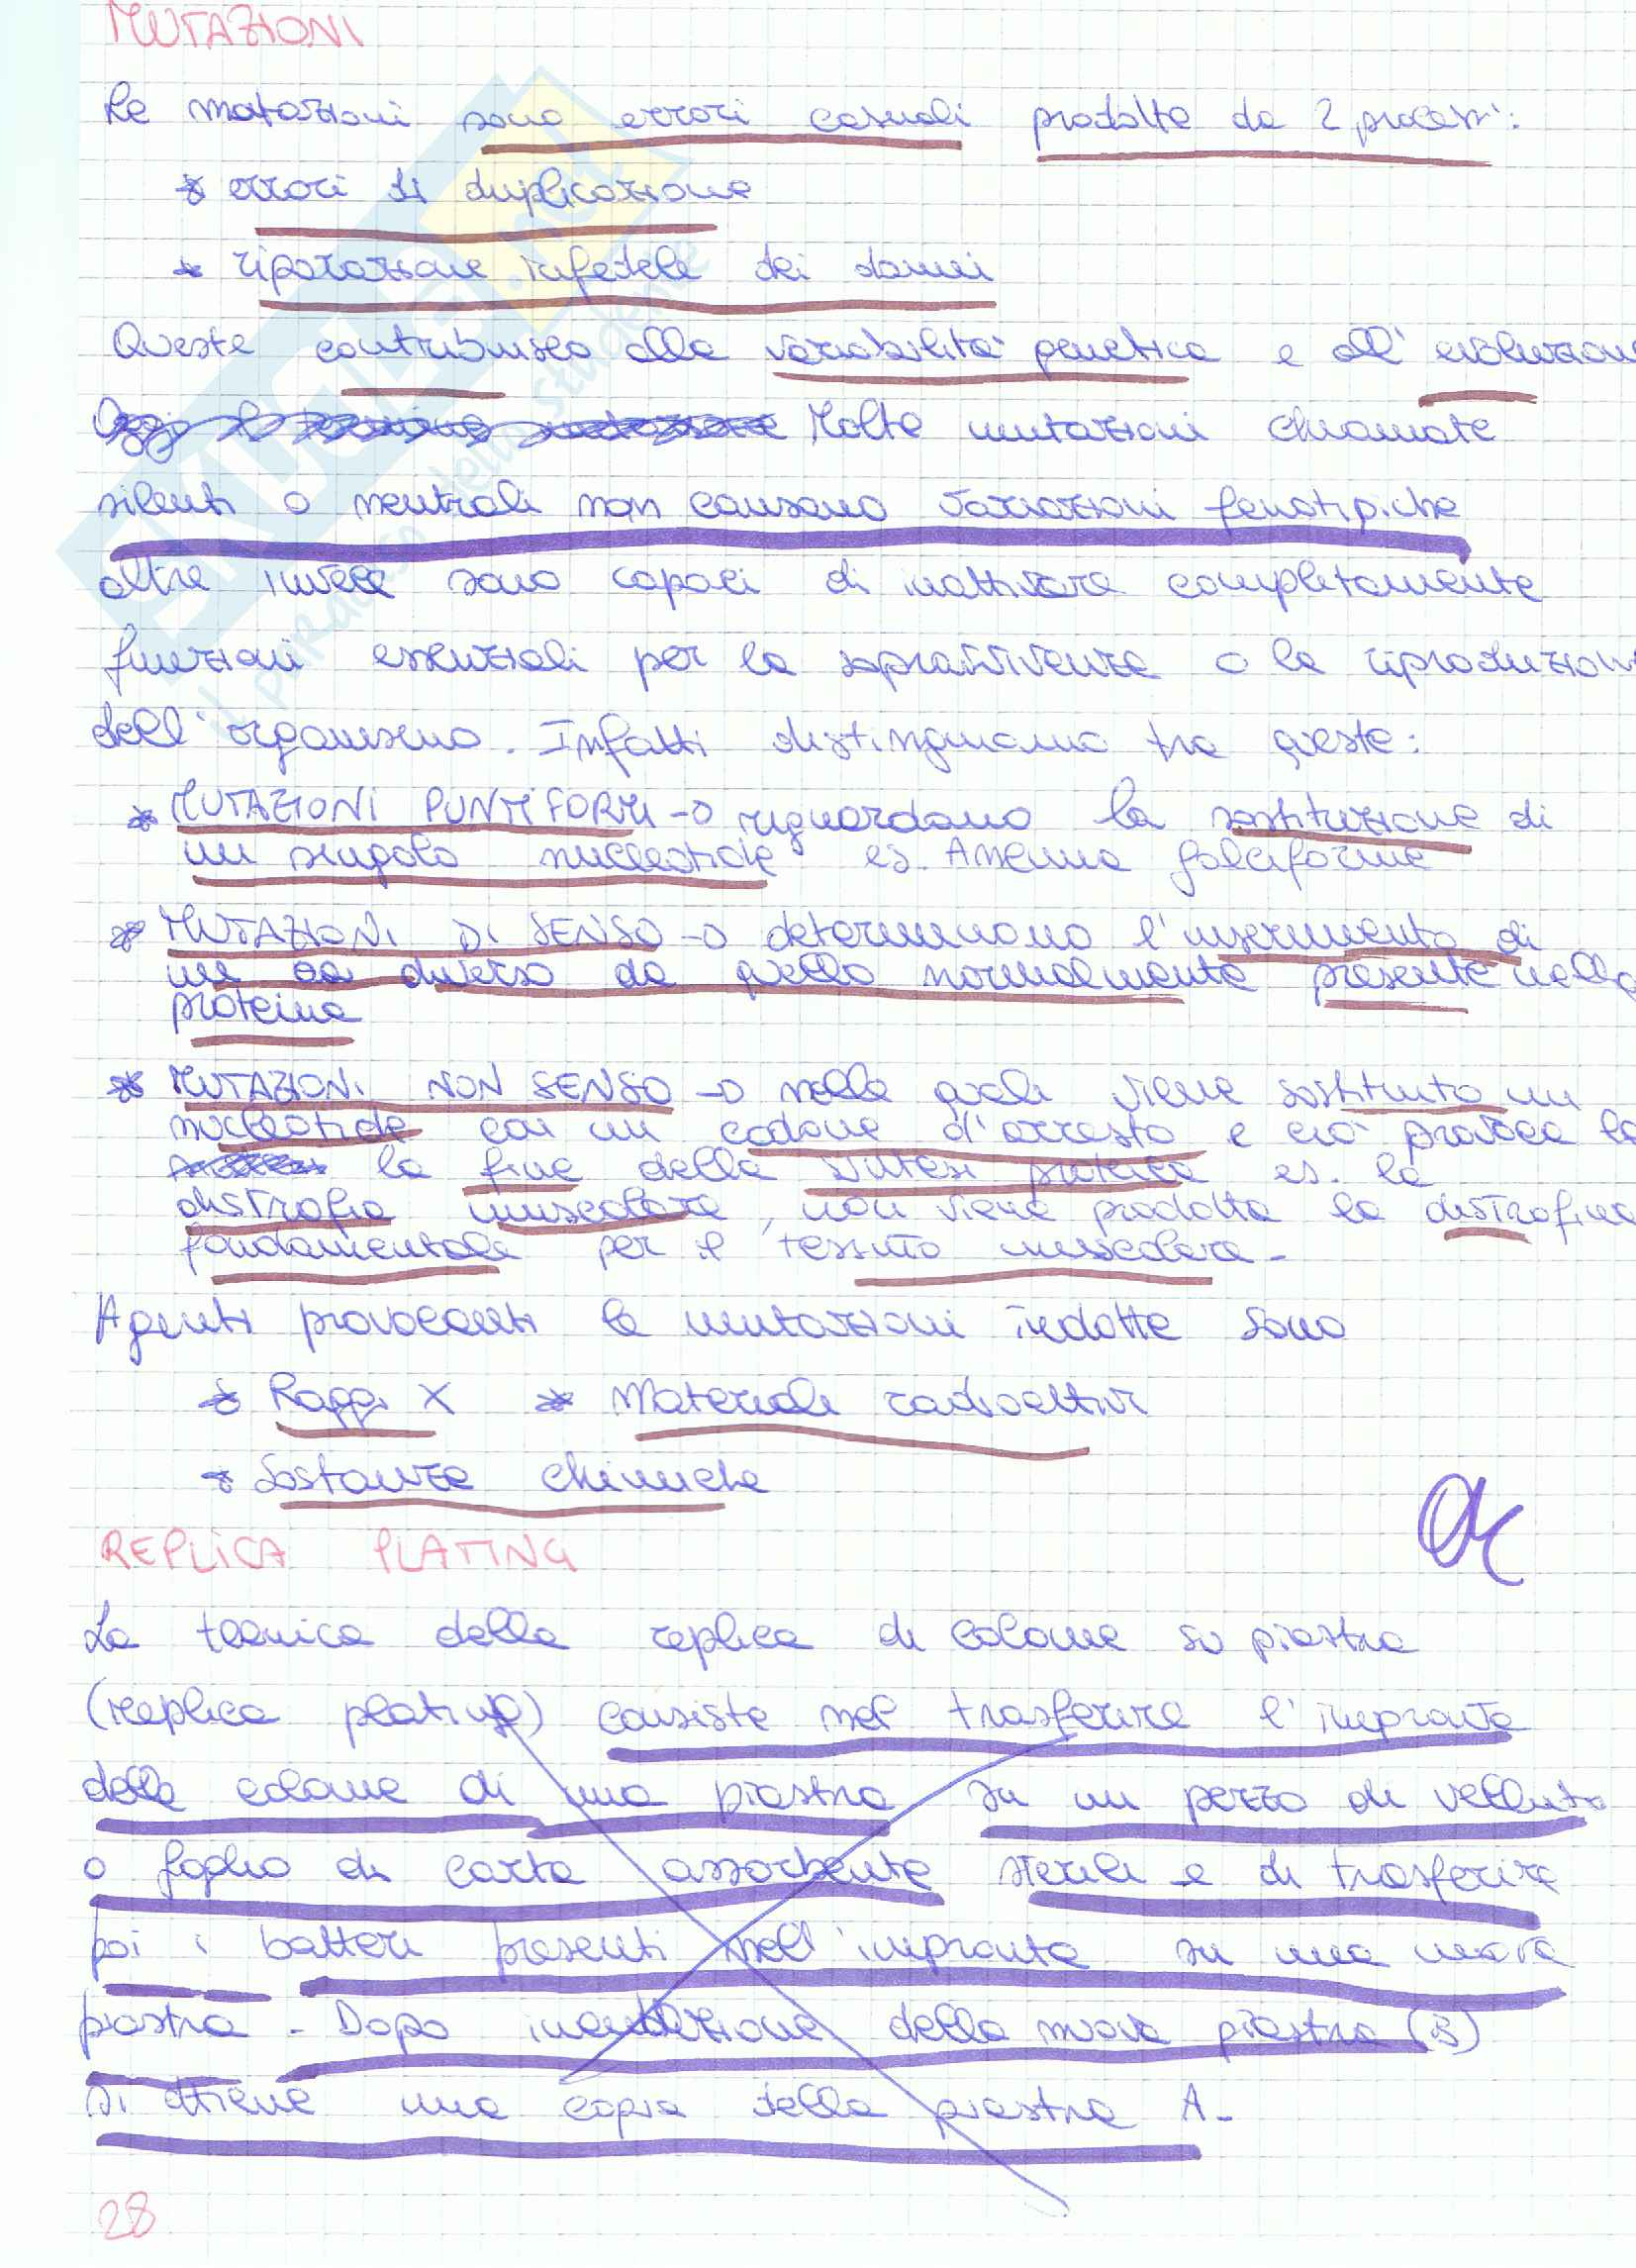 MUTAZIONI
Le mutazioni sono errori casuali prodotte da 2 processi:
* errori di duplicazione
* riparazione infedele dei danni
Queste contribuisco alla variabilità genetica e all'evoluzione
Molte mutazioni chiamate
silenti o neutrali non causano variazioni fenotipiche
altre invece sono capaci di inattivare completamente
funzioni essenziali per la sopravvivenza o la riproduzione
dell'organismo. Infatti distinguiamo tra queste:
* MUTAZIONI PUNTIFORMI → riguardano la sostituzione di
un singolo nucleotide es. Anemia falciforme
* MUTAZIONI DI SENSO → determinano l'inserimento di
un aa diverso da quello normalmente presente nella
proteina
* MUTAZIONI NON SENSO → nelle quali viene sostituito un
nucleotide con un codone d'arresto e ciò provoca la
la fine della sintesi proteica es. la
distrofia muscolare, non viene prodotta la distrofina
fondamentale per il tessuto muscolare.
Agenti provocanti le mutazioni indotte sono
* Raggi X * Materiali radioattivi
* Sostanze chimiche
REPLICA PLATING
La tecnica della replica di colonie su piastra
(replica plating) consiste nel trasferire l'impronta
delle colonie di una piastra su un pezzo di velluto
o foglio di carta assorbente sterile e di trasferire
poi i batteri presenti nell'impronta su una nuova
piastra. Dopo incubazione della nuova piastra (B)
si ottiene una copia della piastra A.
28